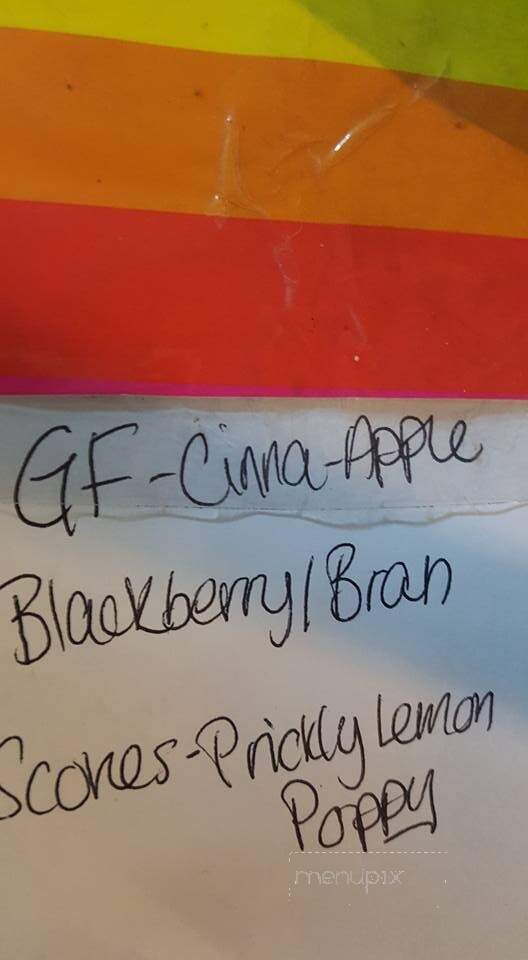 GF-Cinna-Apple
Blackberry/Bran
Scones-Prickly Lemon
Poppy
menupix